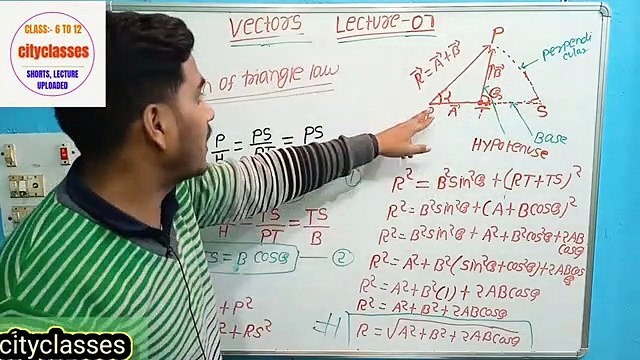 CLASS:- 6 TO 12
cityclasses
SHORTS, LECTURE
UPLOADED
Vectors Lecture-07
of triangle law
P
R⃗ = A⃗ + B⃗
B⃗
perpendi
cular
α
A⃗
θ
T
S
Base
Hypotenuse
P/H = PS/PT = PS
R² = B²sin²θ + (RT+TS)²
R² = B²sin²θ + (A+Bcosθ)²
R² = B²sin²θ + A² + B²cos²θ + 2AB
cosθ
H = TS/PT = TS/B
S = B cosθ — ②
R² = A² + B²(sin²θ+cos²θ)+2AB
cosθ
R² = A² + B²(1) + 2ABcosθ
+ P²
R² = A² + B² + 2ABcosθ
+ RS²
R = √A² + B² + 2ABcosθ
cityclasses